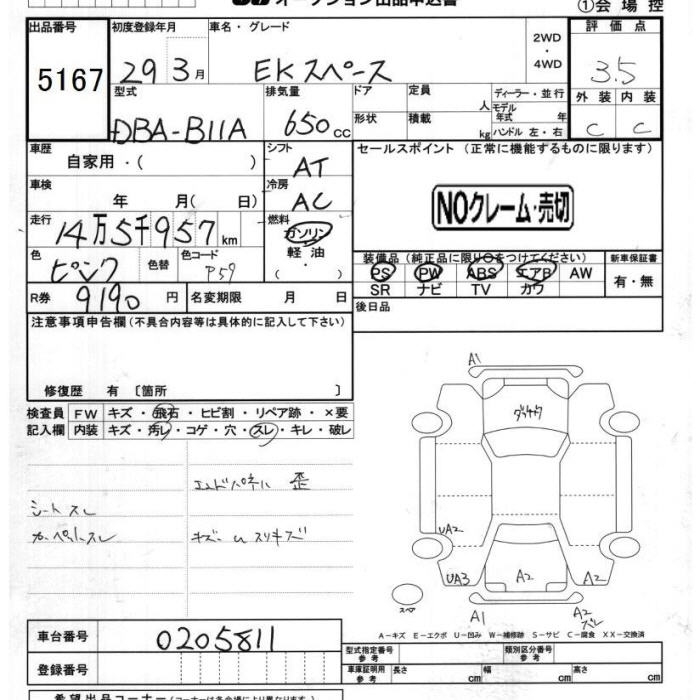 オークション出品申込書
①会場控
出品番号 5167
初度登録年月 29 3月
車名・グレード EKスペース
2WD・4WD
評価点 3.5
外装 C 内装 C
型式 DBA-B11A
排気量 650cc
ドア 形状
定員 人
積載 kg
ディーラー・並行
モデル年式 年
ハンドル 左・右
車歴 自家用・( )
シフト AT
セールスポイント (正常に機能するものに限ります)
NOクレーム・売切
車検 年 月( 日)
冷房 AC
走行 14万5千957km
燃料 ガソリン 軽油 ( ・ )
色 ピンク 色替 色コード P59
装備品(純正品に限り○をつけてください)
PS PW ABS エアB AW
SR ナビ TV カワ
新車保証書 有・無
R券 9190円
名変期限 月 日
後日品
注意事項申告欄(不具合内容等は具体的に記入して下さい)
修復歴 有 〔箇所 〕
検査員記入欄
FW キズ・飛石・ヒビ割・リペア跡・×要
内装 キズ・汚レ・コゲ・穴・スレ・キレ・破レ
エンドパネル 歪
シートスレ
カーペットスレ キズ・U スリキズ
A1
UA2
UA3
A2
A2
A1
A2
スレ
スペア
A-キズ E-エクボ U-凹み W-補修跡 S-サビ C-腐食 XX-交換済
車台番号 0205811
登録番号
型式指定番号 参考
類別区分番号 参考
車庫証明用 参考 長さ cm 幅 cm 高さ cm
希望出品コーナー(コーナーは各会場により異なります)